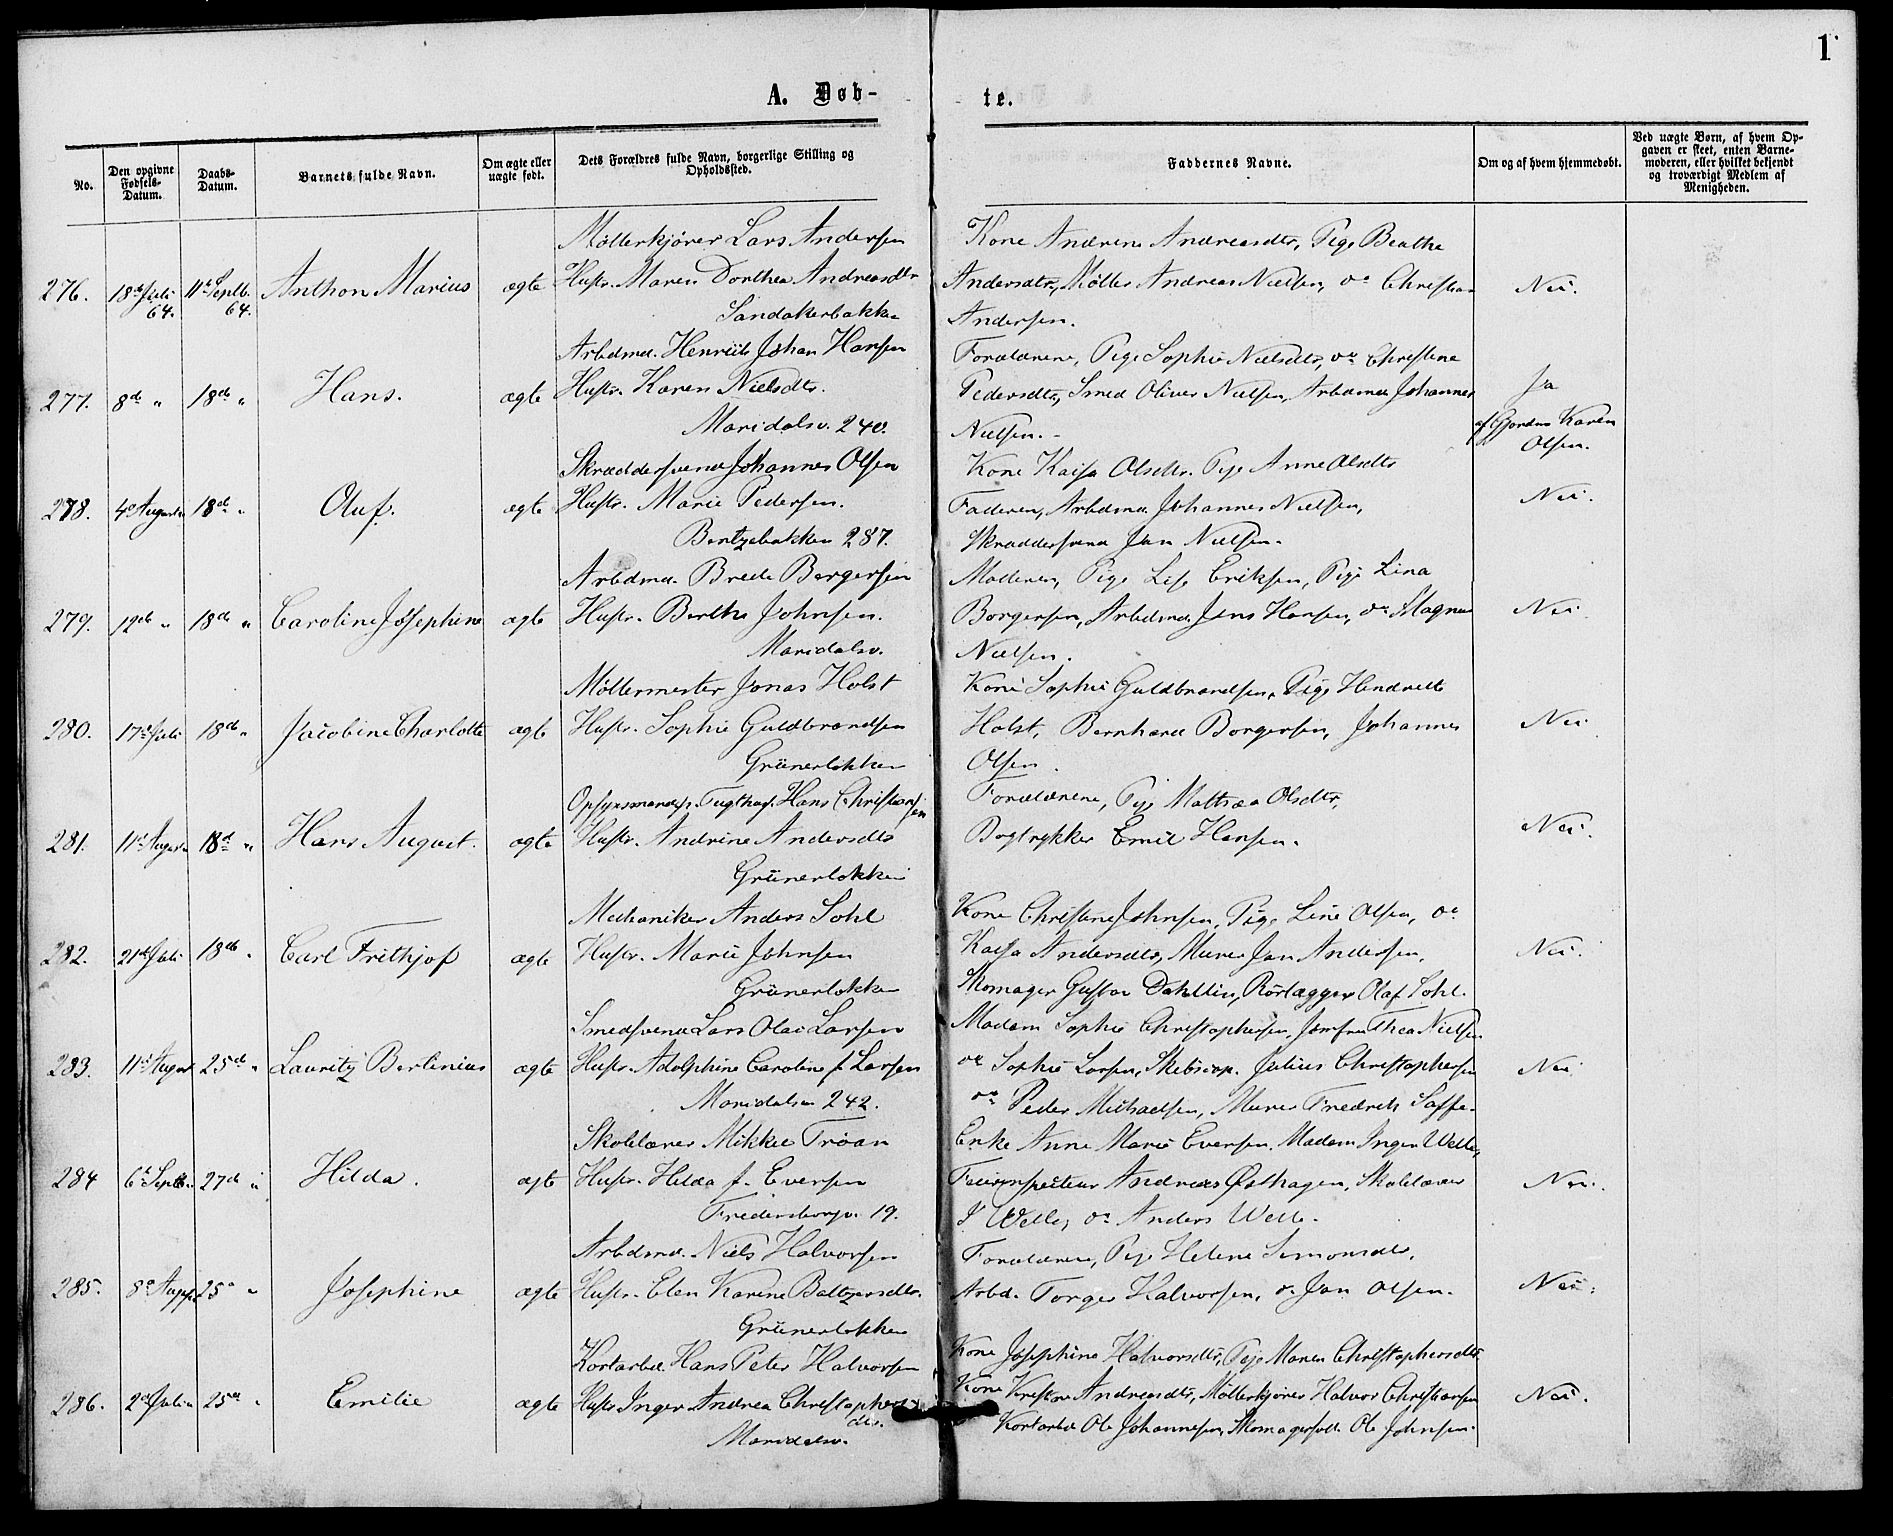 1
A. Døb-
te.
No.
Den opgivne Fødsels-Datum.
Daabs-Datum.
Barnets fulde Navn.
Om ægte eller uægte født.
Dets Forældres fulde Navn, borgerlige Stilling og Opholdssted.
Faddernes Navne.
Om og af hvem hjemmedøbt.
Ved uægte Børn, af hvem Opgaven er skeet, enten Barnemoderen, eller hvilket bekjendt og troværdigt Medlem af Menigheden.
Møllerkjører Lars Andersen
Kone Andrine Andreasdtr, Pige Beathe
276. 18de Juli 64. 11te Septb. 64. Anthon Marius ægte Hustr. Maren Dorthea Andreasdtr
Andersdtr, Møller Andreas Nielsen, oa Christian
Nei.
Sandakerbakken
Andersen.
Arbdmd. Henrik Johan Hansen
Forældrene, Pige Sophie Nielsdtr, oa Christine
277. 8de " 18de " Hans. ægte Hustr. Karen Nielsdtr.
Pedersdtr, Smed Oliver Nielsen, Arbdmd. Johannes
Ja
Maridalsv. 240.
Nielsen.
af Gjordm Karen Olsen.
Skræddersvend Johannes Olsen
Kone Kaisa Olsdtr. Pige Anne Olsdtr
278. 4de August 18de " Oluf. ægte Hustr. Marie Pedersen.
Faderen, Arbdmd. Johannes Nielsen,
Nei.
Bentzebakken 287.
Skræddersvend Jan Nielsen.
Arbdmd. Brede Bergersen
Moderen, Pige Lise Eriksen, Pige Lina
279. 12de " 18de " Caroline Josephine ægte Hustr. Berthe Johnsen.
Borgersen, Arbdmd. Jens Hansen, oa Magnus
Nei
Maridalsv.
Nielsen.
Møllermester Jonas Holst
Kone Sophie Guldbrandsen, Pige Hendrette
280. 17de Juli 18de " Jacobine Charlotte ægte Hustr. Sophie Guldbrandsen
Holst, Bernhard Borgersen, Johannes
Nei
Grünerløkken
Olsen.
Opsynsmand p. Tugthus. Hans Christiansen
Forældrene, Pige Mathea Olsdtr,
281. 11te August 18de " Hans August. ægte Hustr. Andrine Andersdtr
Bogtrykker Emil Hansen.
Nei.
Grünerløkken
Mechaniker Anders Sohl
Kone Christine Johnsen, Pige Line Olsen, oa
282. 21de Juli 18de " Carl Frithjof ægte Hustr. Marie Johnsen
Kaisa Andersdtr, Murer Jan Andersen,
Nei.
Grünerløkken
Skomager Gustav Dahllin, Rørlægger Olaf Sohl.
Smedsvend Lars Olai Larsen
Madam Sophie Christophersen, Jomfru Thea Nielsen
283. 11te August 25de " Lauritz Bertinius ægte Hustr. Adolphine Caroline f. Larsen
oa Sophie Larsen, Skibscap. Julius Christophersen
Nei
Maridalsv 242.
oa Peder Michaelsen, Murer Fredrik Saffe.
Skolelærer Mikkel Trøan
Enke Anne Marie Eversen. Madam Inger Welle,
284 6te Septb. 27de " Hilda. ægte Hustr. Hilda f. Eversen
Feierinspecteur Andreas Østhagen, Skolelærer
Nei.
Fredensborgv. 19.
J Welle, oa Anders Welle.
Arbdmd. Niels Halvorsen
Forældrene, Pige Helene Simonsdtr,
285. 8de Augst 25de " Josephine ægte Hustr. Elen Karine Baltzersdtr.
Arbd. Torger Halvorsen, oa Jan Olsen.
Nei.
Grünerløkken
Kortarbd. Hans Peter Halvorsen
Kone Josephine Halvorsdtr, Pige Maren Christophersdtr
286. 2de Juli 25de " Emilie ægte Hustr Inger Andrea Christophersdtr.
Kone Kirstine Andreasdtr, Møllerkjører Halvor Christiansen
Nei.
Maridalsv.
Kortarbd Ole Johannesen, Skomagersvd. Ole Johnsen.